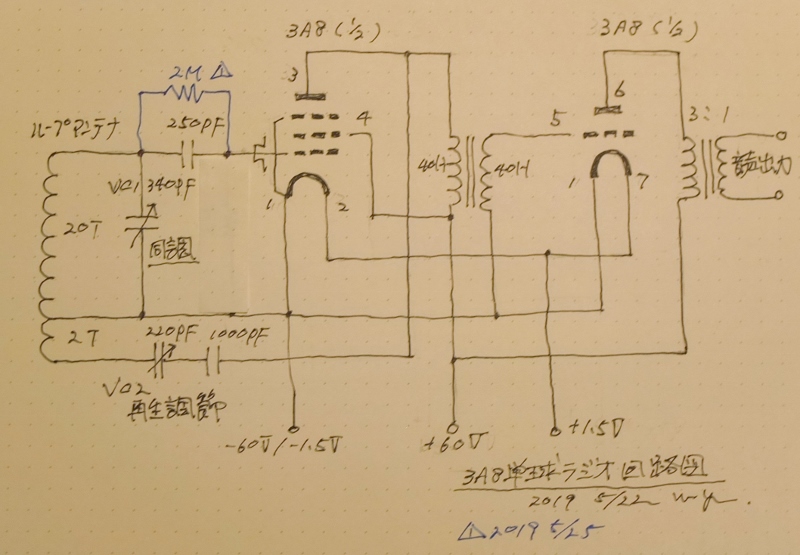 3A8(½)
3A8(½)
2M △
3
6
ループアンテナ
250PF
4
5
3:1
VC1 340PF
40H
40H
音声出力
1
2
1
7
20T
同調
2T
220PF
1000PF
VC2
再生調節
-60V/-1.5V
+60V
+1.5V
3A8単球ラジオ回路図
2019 5/22
△ 2019 5/25